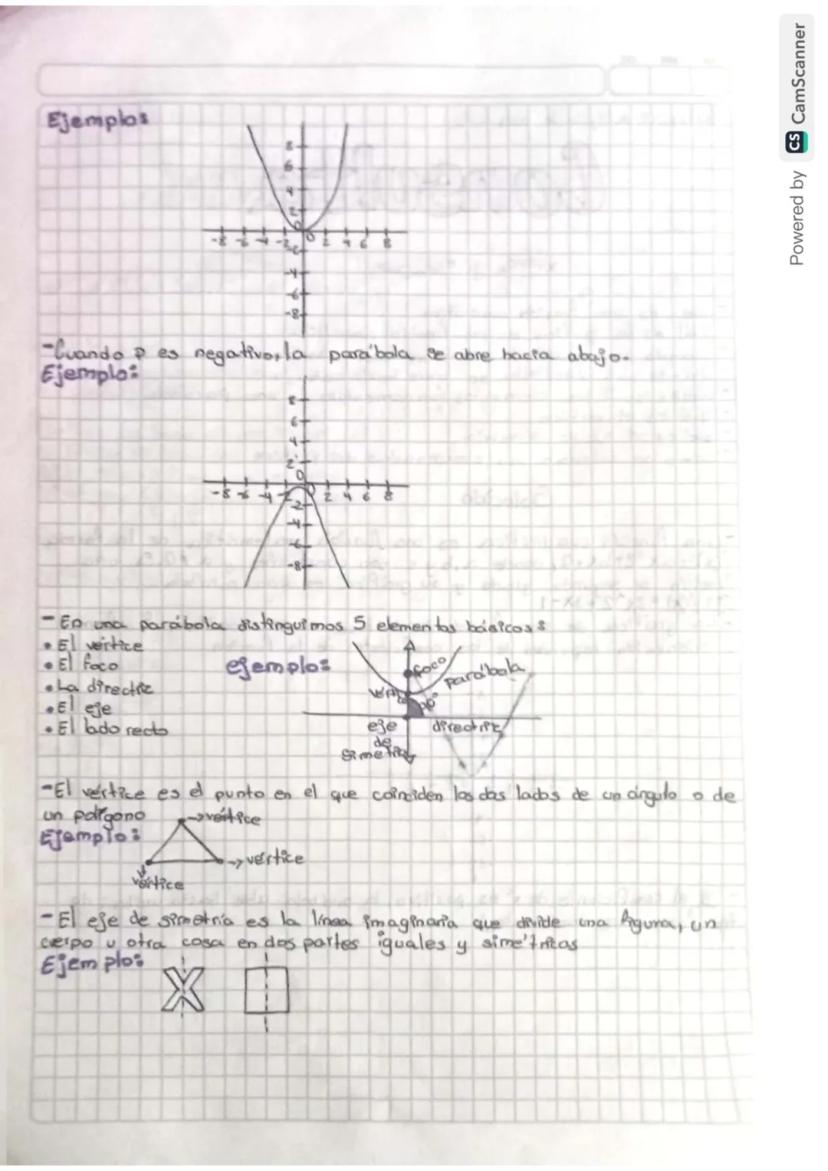 Ejemplos
8
6
4
2
0
-8 -6 -4 -2 0 2 4 6 8
-2
-4
-6
-8
-Cuando p es negativo, la parábola se abre hacia abajo.
Ejemplo:
8
6
4
2
0
-8 -6 -4 -2 2 4 6 8
-2
-4
-6
-8
- En una parábola distinguimos 5 elementos básicos:
• El vértice
• El foco
• La directriz
• El eje
• El lado recto
ejemplo:
foco
parábola
eje
de
simetría
directriz
-El vértice es el punto en el que coinciden los dos lados de un ángulo o de
un polígono
Ejemplo:
→vértice
→vértice
vértice
- El eje de simetría es la línea imaginaria que divide una figura, un
cuerpo u otra cosa en dos partes iguales y simétricas
Ejemplo:
Powered by CS CamScanner